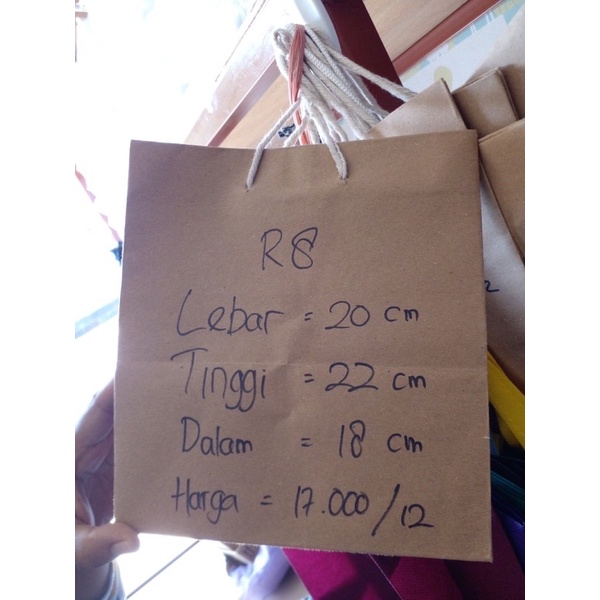 R8
Lebar = 20 cm
Tinggi = 22 cm
Dalam = 18 cm
Harga = 17.000/12
2